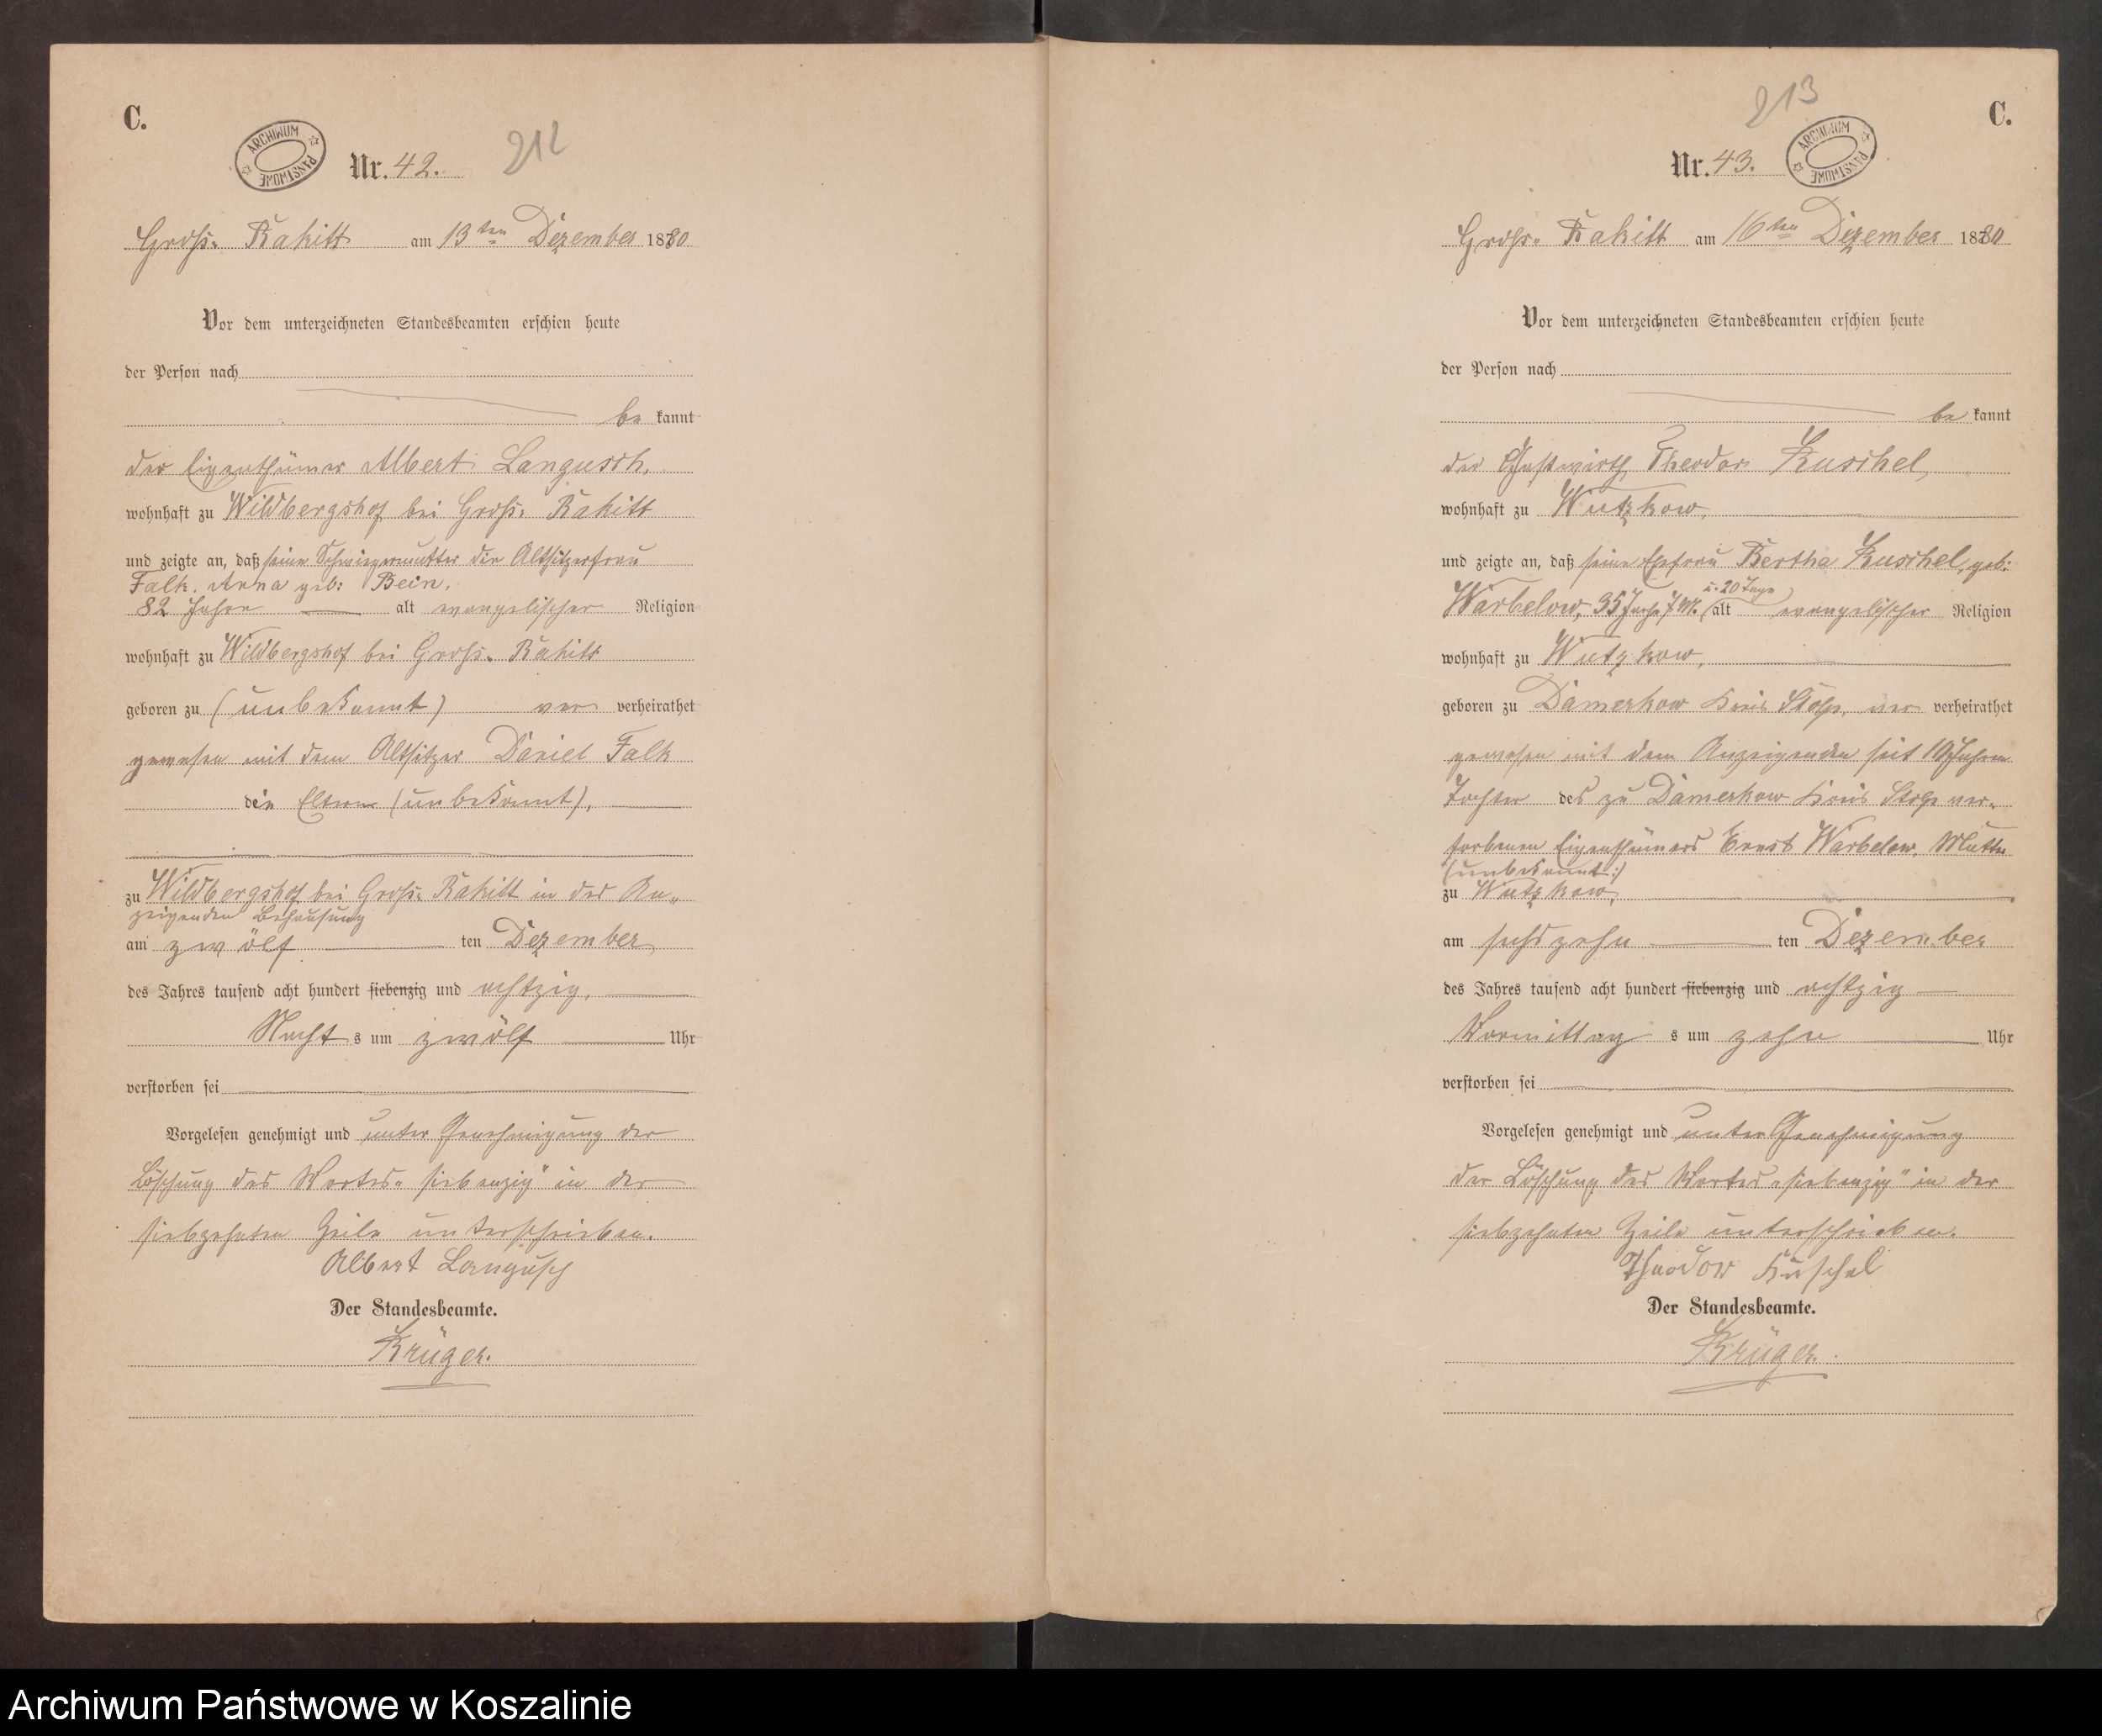 C.
ARCHIWUM PAŃSTWOWE
Nr. 42.
212
Groß-Rakitt am 13ten Dezember 1880
Vor dem unterzeichneten Standesbeamten erschien heute
der Person nach
bekannt
der Eigenthümer Albert Langusch,
wohnhaft zu Wildbergshof bei Groß-Rakitt
und zeigte an, daß seine Schwiegermutter die Altsitzerfrau
Falk, Anna geb: Bein,
82 Jahre alt evangelischer Religion
wohnhaft zu Wildbergshof bei Groß-Rakitt
geboren zu (unbekannt) ver verheirathet
gewesen mit dem Altsitzer Daniel Falk
die Eltern (unbekannt),
zu Wildbergshof bei Groß-Rakitt in des An-
zeigenden Behausung
am zwölf ten Dezember
des Jahres tausend acht hundert siebenzig und achtzig,
Nachts um zwölf Uhr
verstorben sei
Vorgelesen genehmigt und unter Genehmigung der
Löschung des Wortes "siebenzig" in der
siebzehnten Zeile unterschrieben.
Albert Langusch
Der Standesbeamte.
Krüger.
213
C.
Nr. 43.
ARCHIWUM PAŃSTWOWE
Groß-Rakitt am 16ten Dezember 1880
Vor dem unterzeichneten Standesbeamten erschien heute
der Person nach
bekannt
der Gastwirth Theodor Kuschel,
wohnhaft zu Wutzkow,
und zeigte an, daß seine Ehefrau Bertha Kuschel, geb:
u. 20 Tage
Warbelow, 35 Jahre 7 M. alt evangelischer Religion
wohnhaft zu Wutzkow,
geboren zu Damerkow Kreis Stolp, ver verheirathet
gewesen mit dem Anzeigenden seit 10 Jahren
Tochter des zu Damerkow Kreis Stolp ver-
storbenen Eigenthümers Ernst Warbelow, Mutter
(unbekannt:)
zu Wutzkow,
am sechszehn ten Dezember
des Jahres tausend acht hundert siebenzig und achtzig
Vormittags um zehn Uhr
verstorben sei
Vorgelesen genehmigt und unter Genehmigung
der Löschung des Wortes "siebenzig" in der
siebzehnten Zeile unterschrieben.
Theodor Kuschel
Der Standesbeamte.
Krüger.
Archiwum Państwowe w Koszalinie